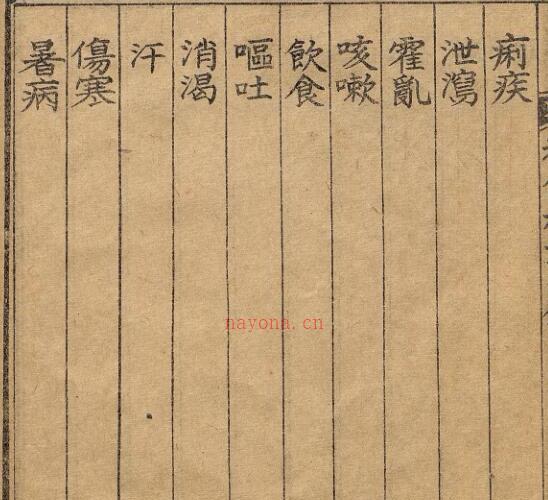 痢疾
泄瀉
霍亂
咳嗽
飲食
嘔吐
消渴
汗
傷寒
暑病
nayona.cn